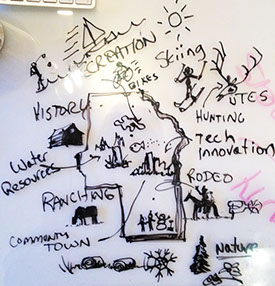 RECREATION
Skiing
BIKES
HISTORY
UTES
HUNTING
Tech
Innovation
Water
Resources
RODEO
RANCHING
TOWN
Nature